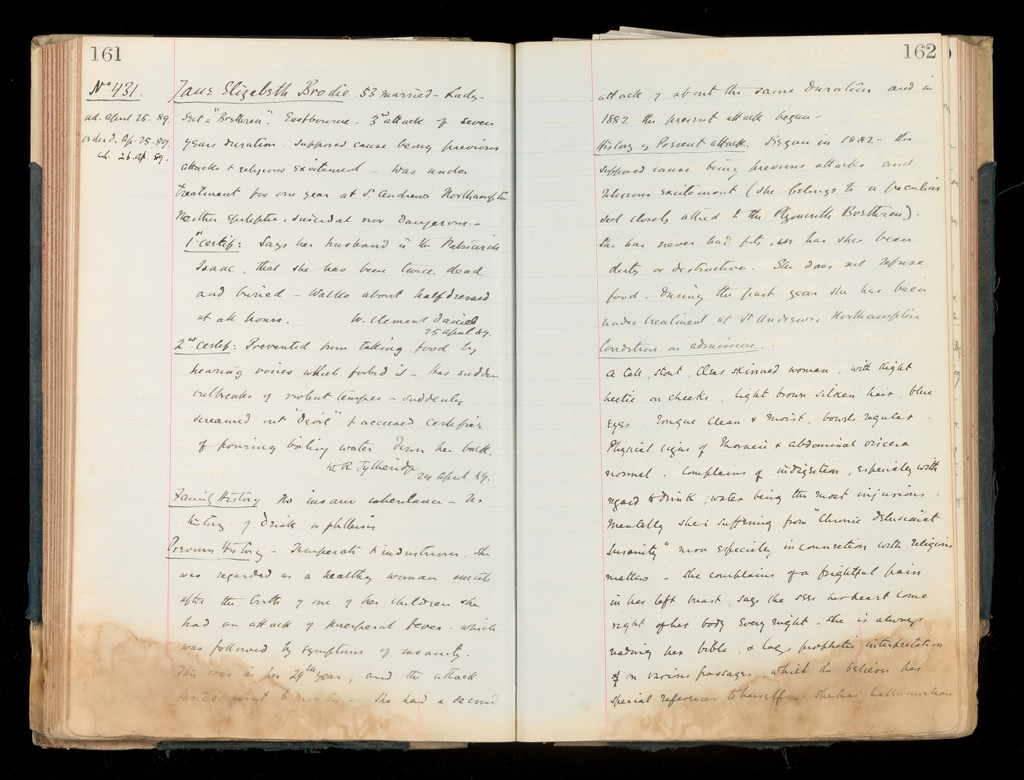 161
No 431. Jane Elizabeth Brodie. 53 married - Lady -
ad. April 25. 89. Sect a "Brethren". Eastbourne - 3rd attack of seven
order d. Ap. 25. 89. years duration. Supposed cause being previous
26. ap. 89. attacks & religious excitement - was under
treatment for one year at St. Andrews Northampton
Neither epileptic, suicidal nor dangerous. -
1st certif: Says her husband is the Patriarch
Isaac, that she has been twice dead
and buried - walks about half dressed
at all hours. W. Clement Daniel
25 april 89.
2nd certif: Prevented from taking food by
hearing voices which forbid it - Has sudden
outbreaks of violent temper - suddenly
screamed out "Devil" & accused certifier
of pouring boiling water down her back.
24 april 89.
Family History No insane inheritance - No
history of Drink or phthisis
Previous History - Temperate & industrious. She
was regarded as a healthy woman until
after the birth of one of her children she
had an attack of puerperal fever which
was followed by symptoms of insanity.
This was in her 29th year, and the attack
She had a second
162
attack of about the same duration and in
1882 the present attack began -
History of Present attack. Began in 1882 - the
supposed cause being previous attacks and
religious excitement (she belongs to a peculiar
sect closely allied to the Plymouth Brethren).
She has never had fits, nor has she been
dirty or destructive. She does not refuse
food. During the past year she has been
under treatment at St Andrews, Northampton
Condition on admission.
A tall, stout, clear skinned woman, with slight
hectic on cheeks, light brown silken hair, blue
eyes. Tongue clean & moist, bowels regular.
Physical signs of Thoracic & abdominal viscera
normal. Complains of indigestion, especially with
regard to drink, water being the most injurious.
Mentally she is suffering from "Chronic Delusional
Insanity" more especially in connection with religious
matters - She complains of a frightful pain
in her left breast, says she sees her heart come
right of her body every night - She is always
reading her bible, & has prophetic interpretation
of various passages, which she believes has
special references to herself - She has hallucinations